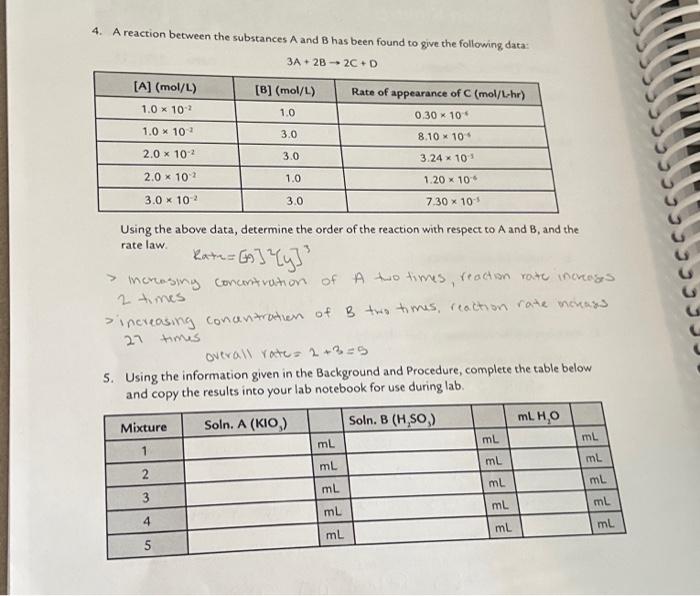 4. A reaction between the substances A and B has been found to give the following data:
3A + 2B → 2C + D
[A] (mol/L) [B] (mol/L) Rate of appearance of C (mol/L-hr)
1.0 × 10⁻² 1.0 0.30 × 10⁻⁶
1.0 × 10⁻² 3.0 8.10 × 10⁻⁶
2.0 × 10⁻² 3.0 3.24 × 10⁻⁵
2.0 × 10⁻² 1.0 1.20 × 10⁻⁶
3.0 × 10⁻² 3.0 7.30 × 10⁻⁵
Using the above data, determine the order of the reaction with respect to A and B, and the
rate law.
Rate = [A]²[y]³
> increasing concentration of A two times, reaction rate increases
2 times
> increasing concentration of B two times, reaction rate increases
27 times
overall rate = 2 + 3 = 5
5. Using the information given in the Background and Procedure, complete the table below
and copy the results into your lab notebook for use during lab.
Mixture Soln. A (KIO₃) Soln. B (H₂SO₃) mL H₂O
1 mL mL mL
2 mL mL mL
3 mL mL mL
4 mL mL mL
5 mL mL mL